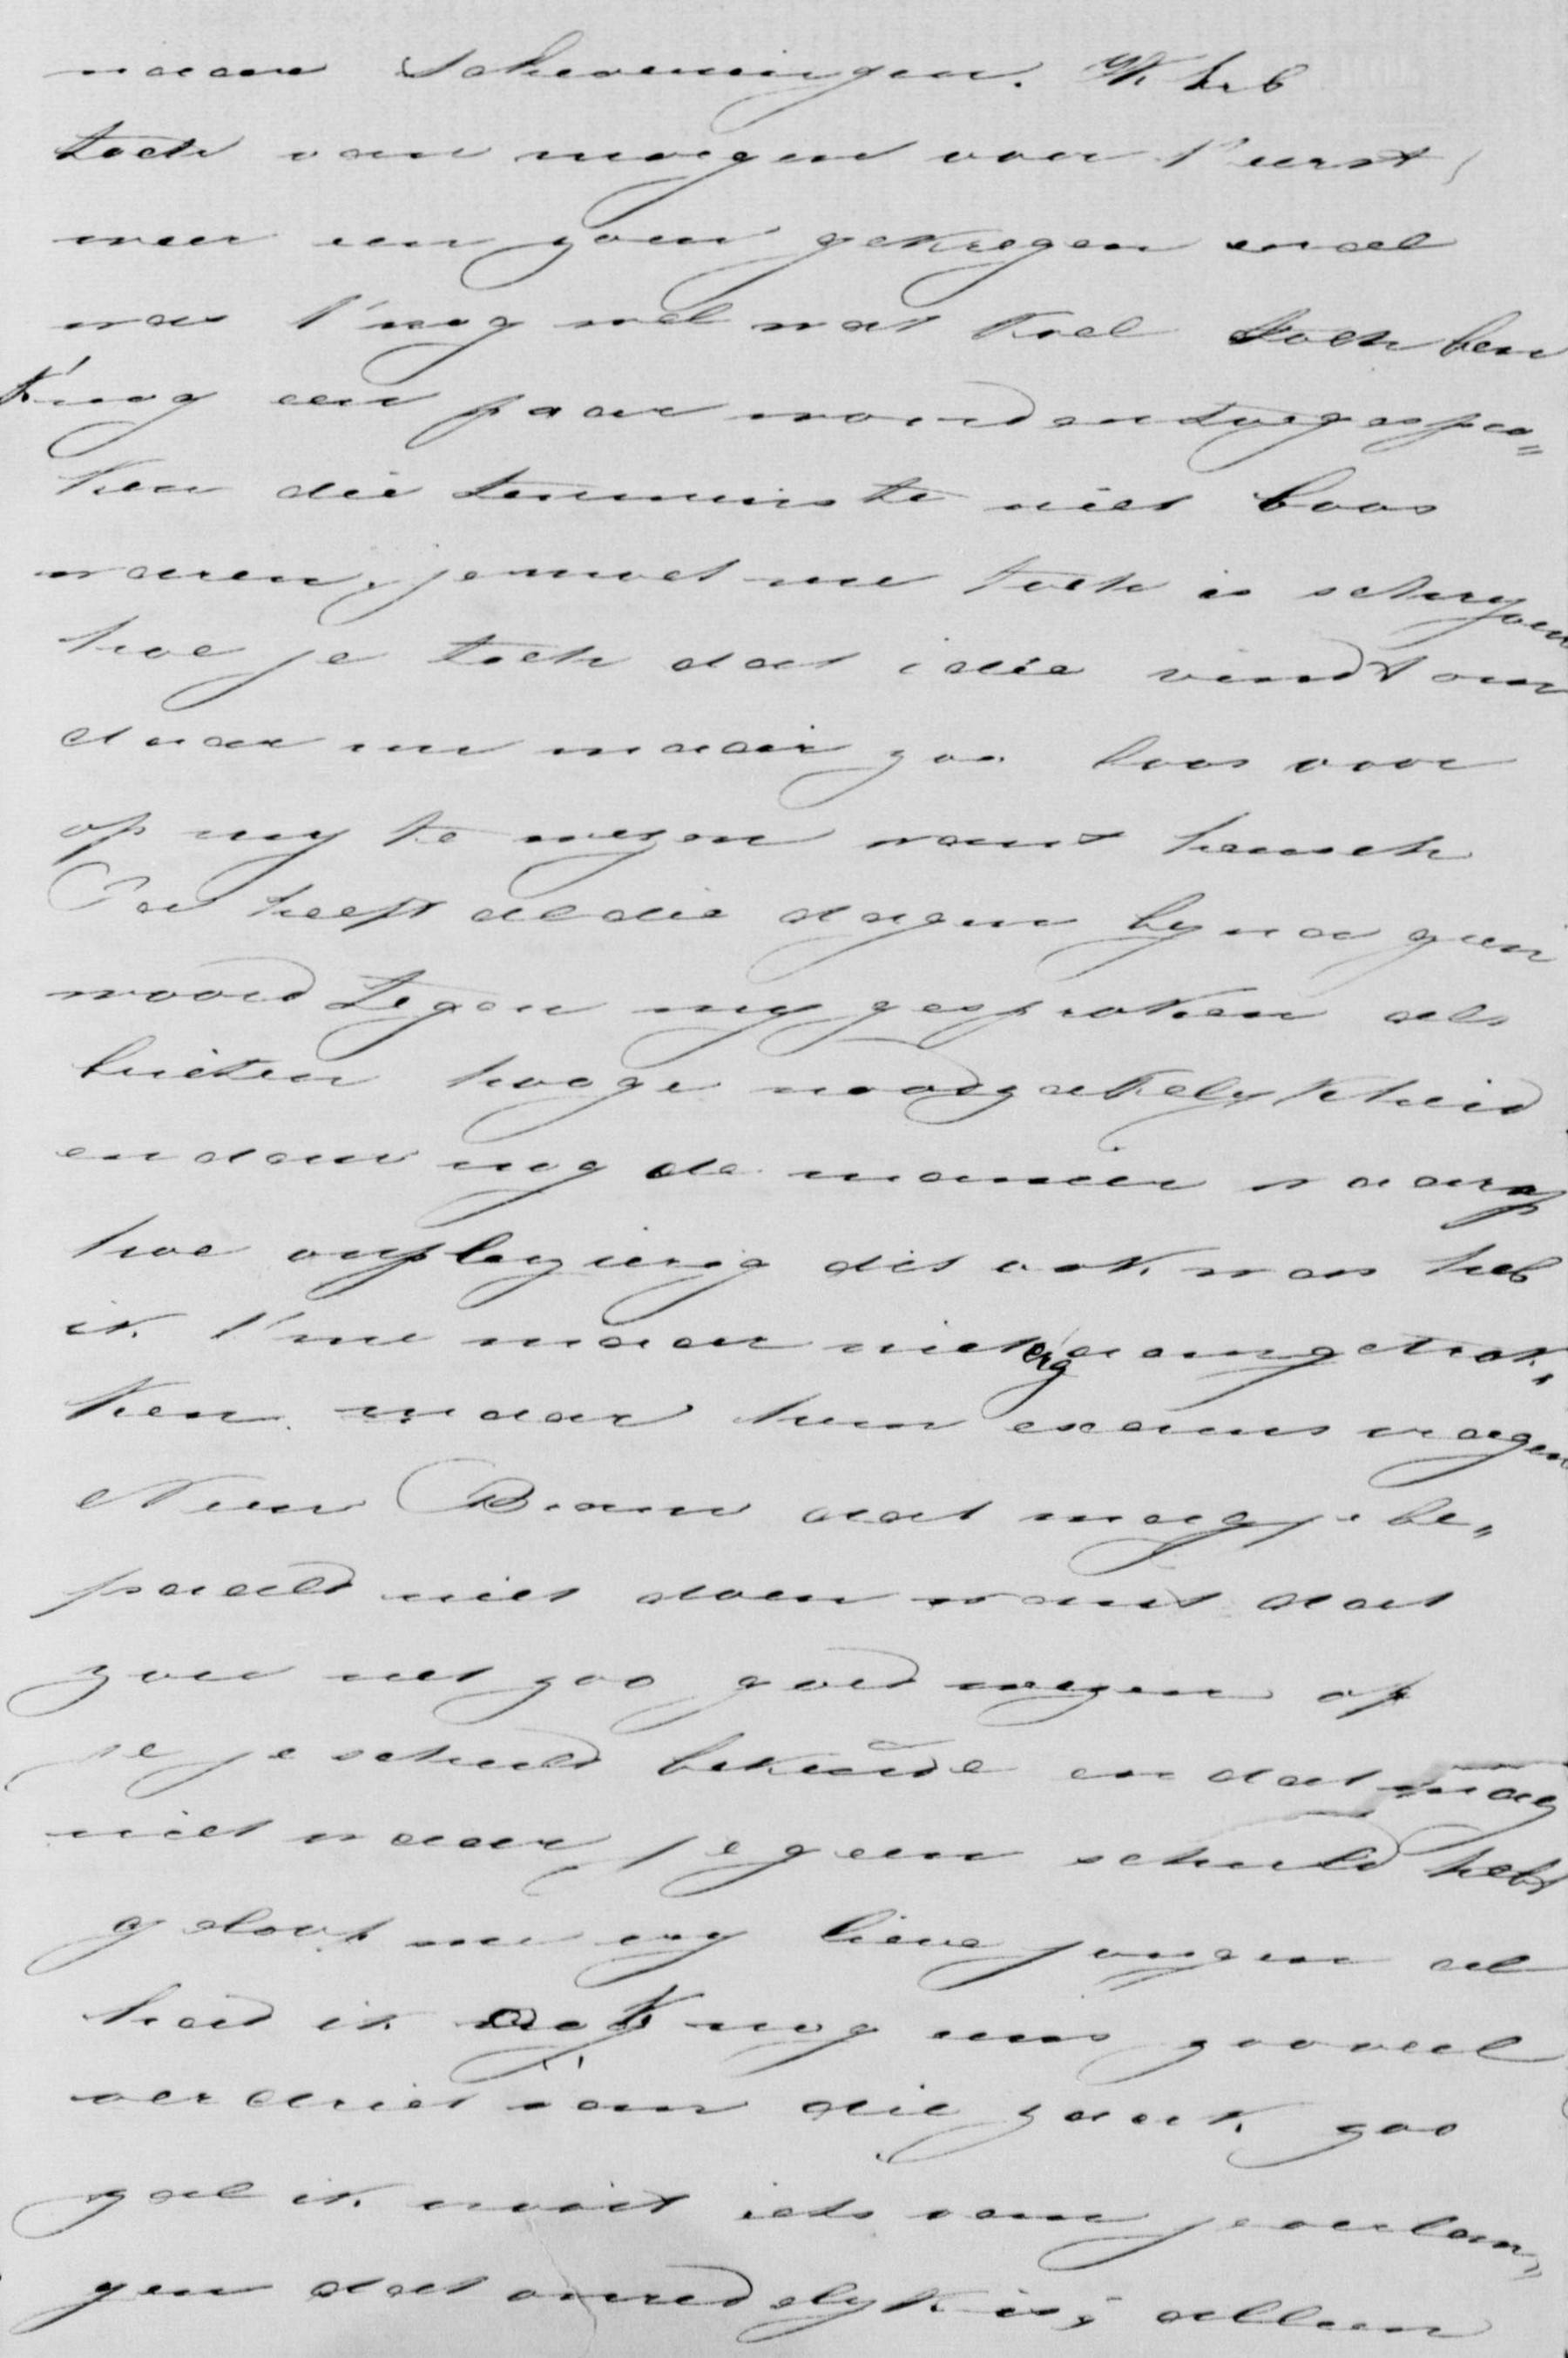 naar Scheveningen. Ik heb
toch van morgen voor 't eerst
weer een zoen gekregen en al
was 't nog wel wat koel toch ben
k' nog een paar woorden toegespro„
ken die tenminste niet boos
waren, je moet me toch is schryven
hoe je toch dat idée vindt om
daar nu maar zoo boos voor
op my te wezen want heusch
Pa heeft al die dagen byna geen
woord tegen my gesproken als
buiten hooge noodzakelykheid
en dan nog de manier waarop
hoe onplezierig dit ook was heb
ik 't me maar niet erg aangetrok„
ken. maar hun excuus vragen
Neen Bram dat mag je be„
paald niet doen want dat
zou net zoo goed wezen of
je je schuld bekende en dat mag
niet waar je geen schuld hebt
geloof me myn lieve jongen al
had ik ook nog eens zooveel
verdriet van die zaak zoo
zal ik nooit iets van je verlan„
gen dat onredelyk is; alleen